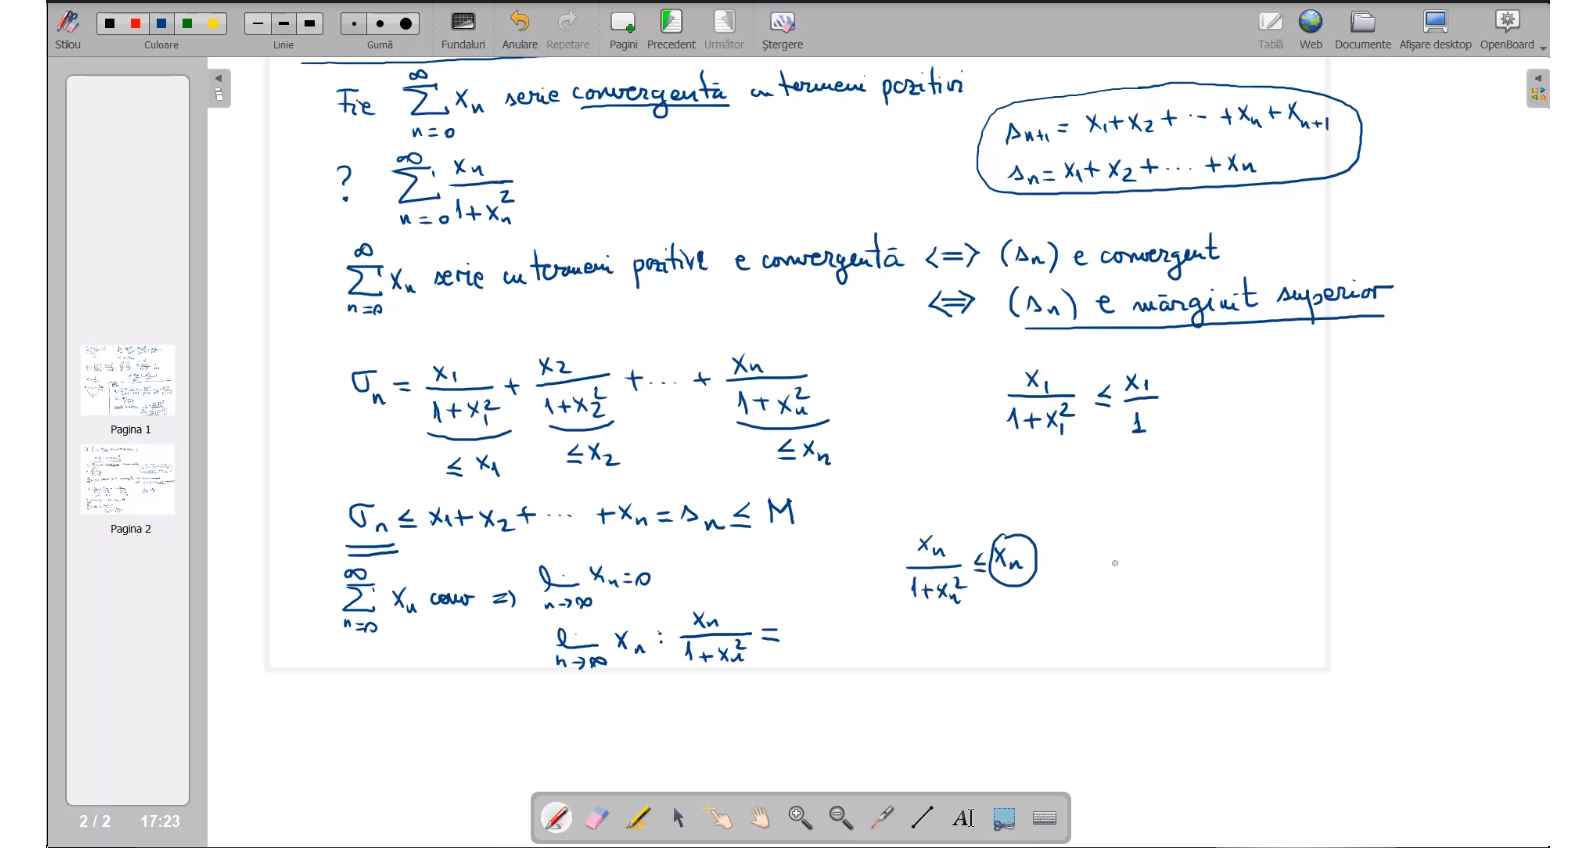 Stilou Culoare Linie Gumă Fundaluri Anulare Repetare Pagini Precedent Următor Ștergere Tablă Web Documente Afișare desktop OpenBoard
Fie ∑_{n=0}^{∞} x_n serie convergentă cu termeni pozitivi
s_{n+1} = x_1+x_2+ ··· +x_n+x_{n+1}
s_n = x_1+x_2+ ··· +x_n
? ∑_{n=0}^{∞} x_n/(1+x_n^2)
∑_{n=0}^{∞} x_n serie cu termeni pozitivi e convergentă <=> (s_n) e convergent
<=> (s_n) e mărginit superior
σ_n = x_1/(1+x_1^2) + x_2/(1+x_2^2) + ··· + x_n/(1+x_n^2)
≤ x_1 ≤ x_2 ≤ x_n
x_1/(1+x_1^2) ≤ x_1/1
σ_n ≤ x_1+x_2+ ··· +x_n = s_n ≤ M
x_n/(1+x_n^2) ≤ x_n
∑_{n=0}^{∞} x_n conv => lim_{n→∞} x_n = 0
lim_{n→∞} x_n : x_n/(1+x_n^2) =
Pagina 1
Pagina 2
2 / 2 17:23
AI